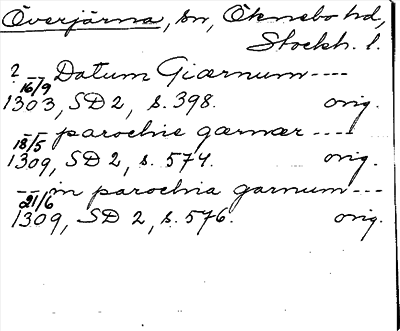 Överjärna, sn, Öknebo hd,
Stockh. l.
? -- Datum Giærnum ----
16/9
1303, SD 2, s. 398. orig.
-- parochie gærnær ----
18/5
1309, SD 2, s. 574. orig.
-- in parochia garnum ---
21/6
1309, SD 2, s. 576. orig.